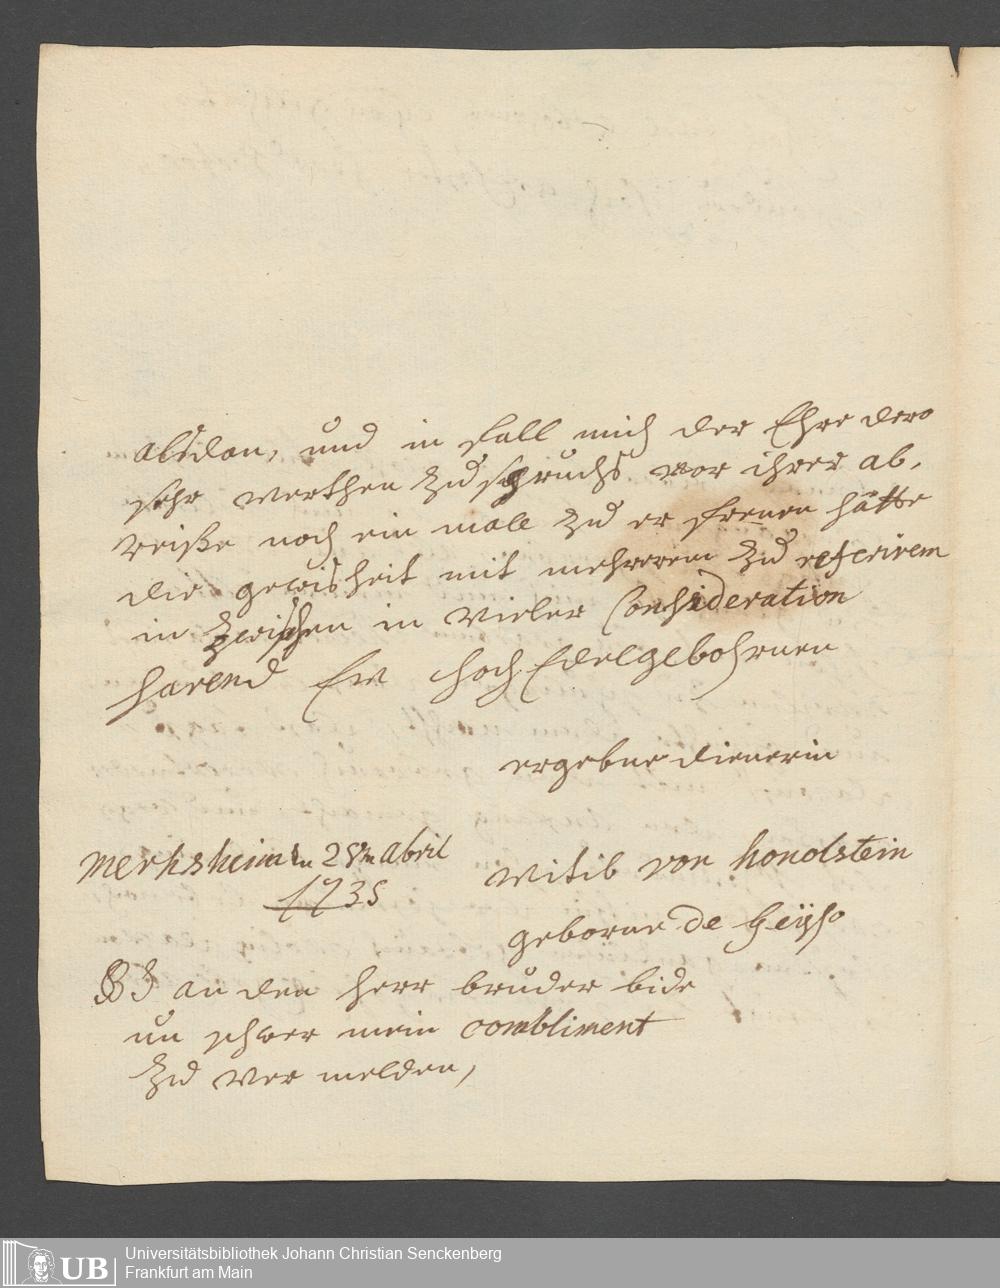 alsdan, und in fall mich der Ehre dero
sehr werthen zuspruchs vor ihrer ab,
reiße noch ein mall zu er freuen hätte
die gewisheit mit mehrerem zu referirem
in zwischen in vieler Consideration
harend Ew hoch Edelgebohrnen
ergebne dienerin
merksheim 25tn abril
1735
witib von honolstein
geborne de Geÿso
an den herr bruder bide
un schwer mein combliment
zu ver melden,
UB
Universitätsbibliothek Johann Christian Senckenberg
Frankfurt am Main